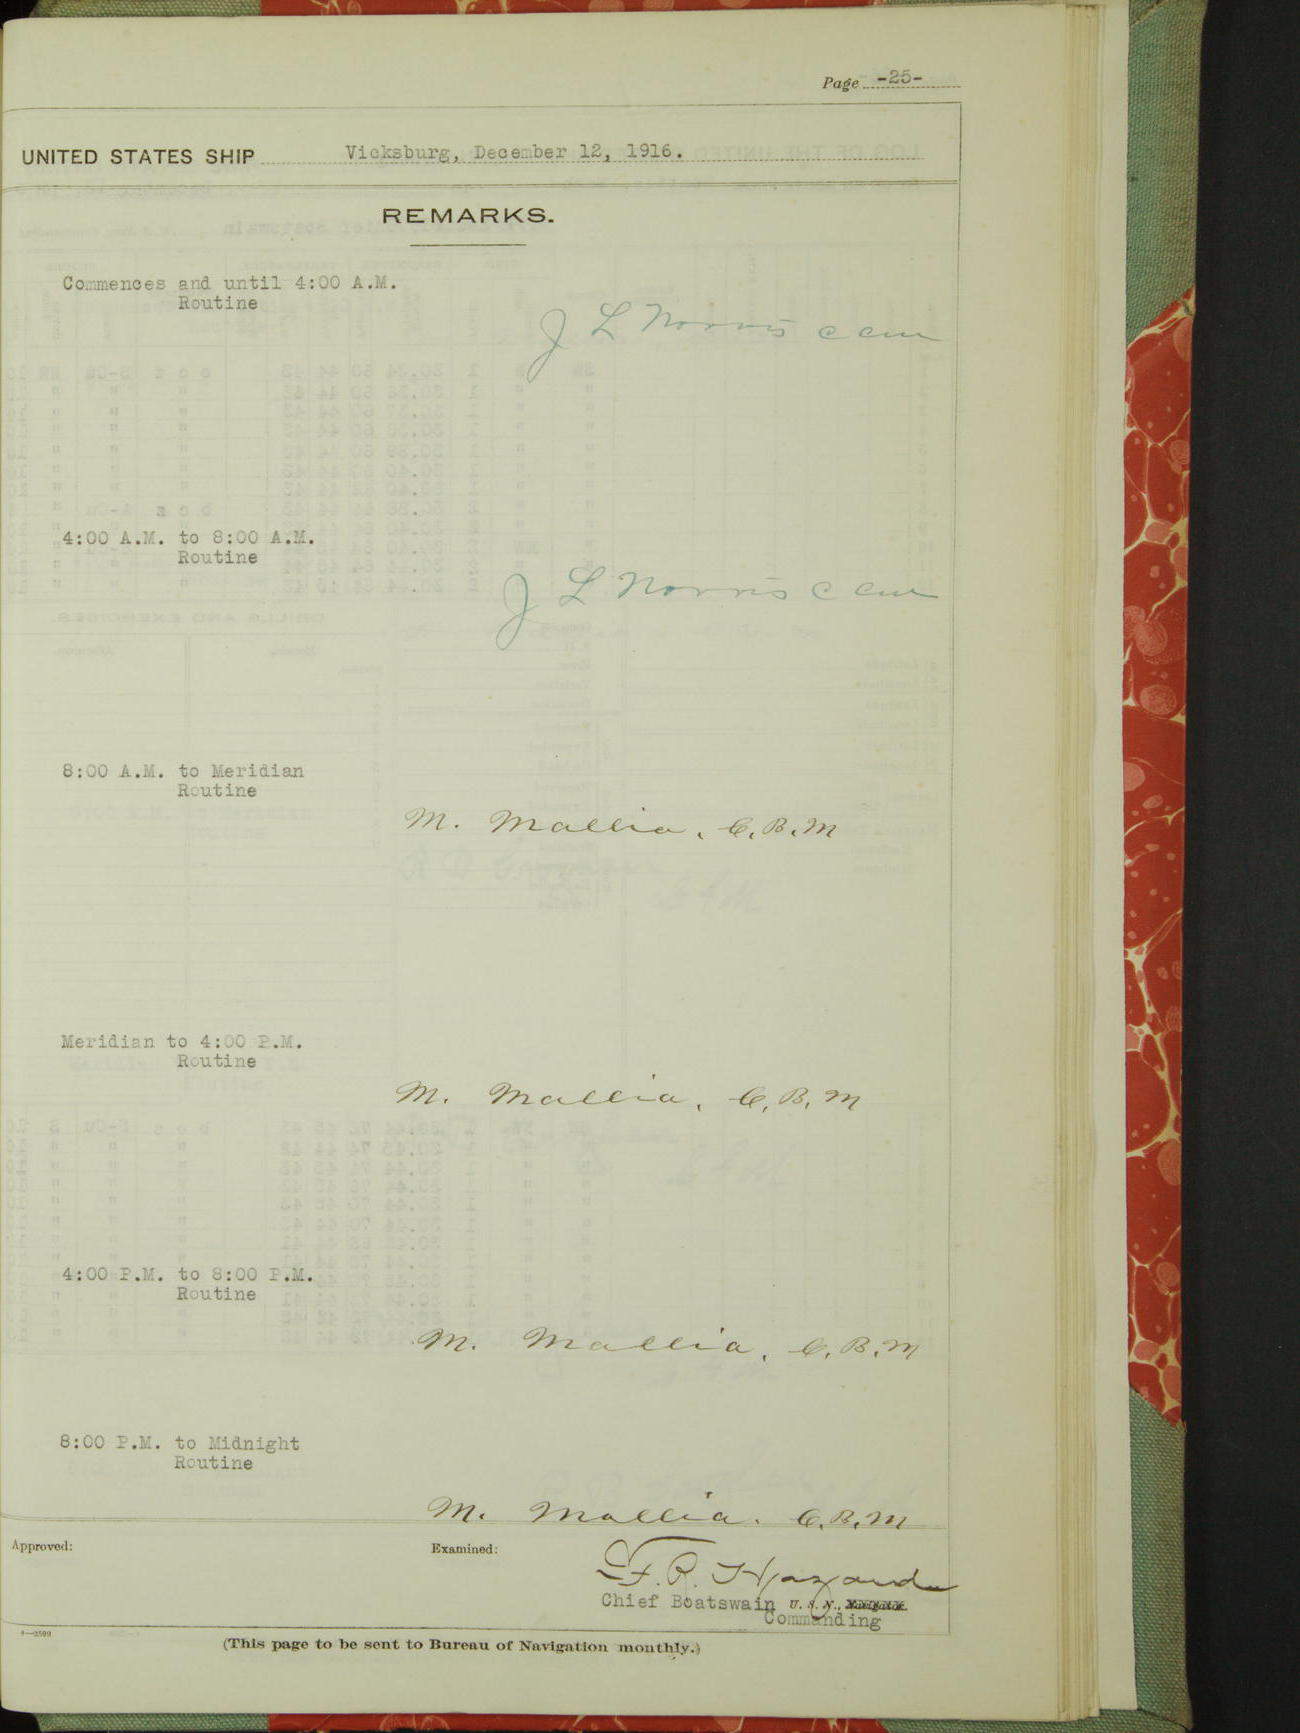 Page -25-
UNITED STATES SHIP Vicksburg, December 12, 1916.
REMARKS.
Commences and until 4:00 A.M.
Routine
J L Norris C C M
4:00 A.M. to 8:00 A.M.
Routine
J L Norris C C M
8:00 A.M. to Meridian
Routine
M. Mallia, C.B.M
Meridian to 4:00 P.M.
Routine
M. Mallia, C.B.M
4:00 P.M. to 8:00 P.M.
Routine
M. Mallia, C.B.M
8:00 P.M. to Midnight
Routine
M. Mallia. C.B.M
Approved:
Examined:
F. R. Hazard
Chief Boatswain U. S. N., Navigator.
Commanding
(This page to be sent to Bureau of Navigation monthly.)